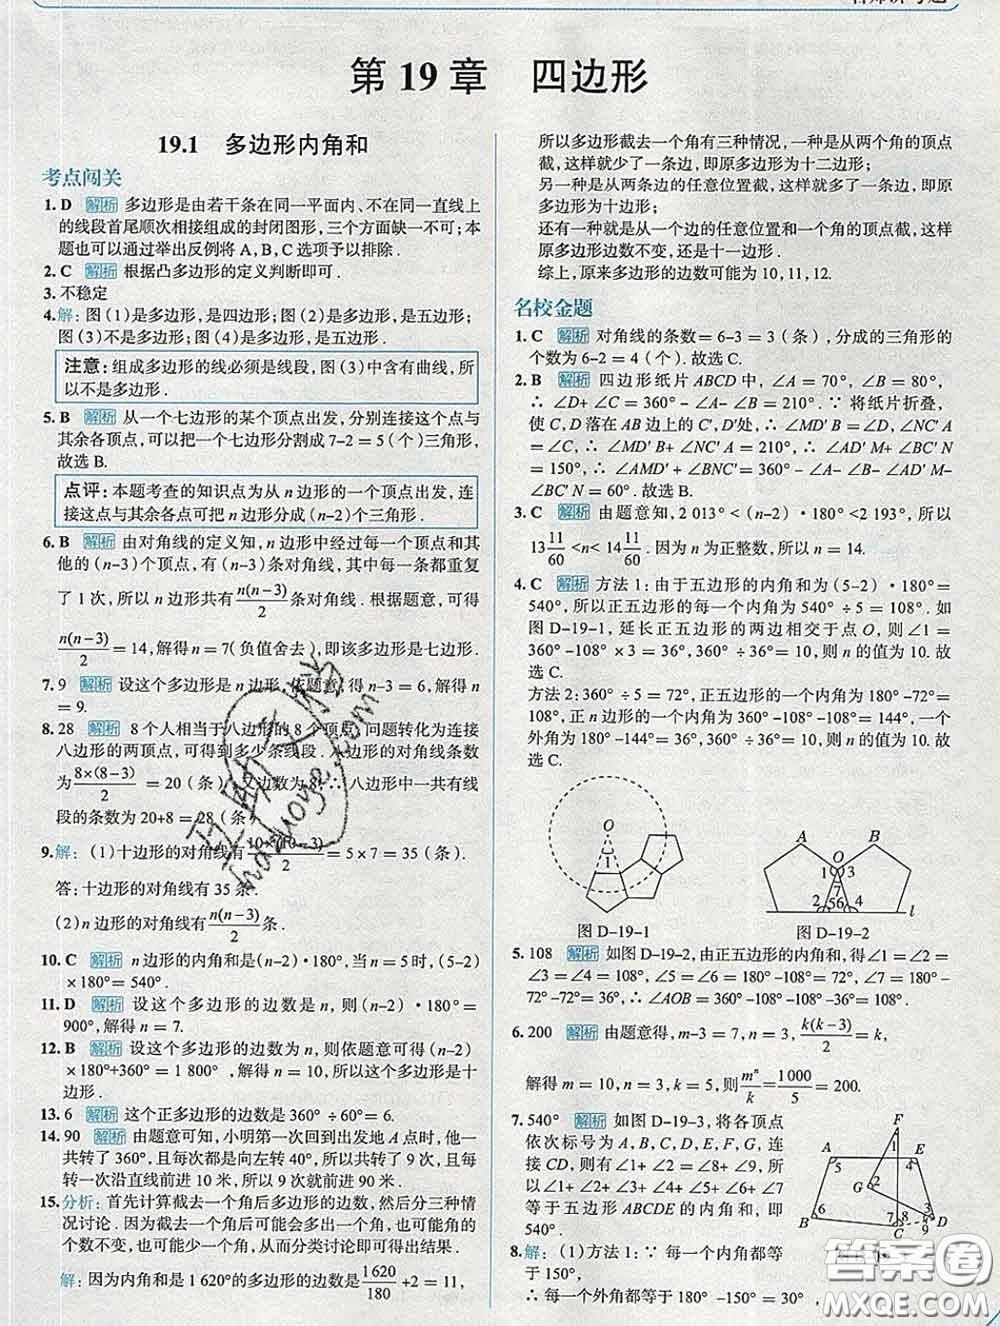 第 19 章 四边形
19.1 多边形内角和
考点闯关
1. D 解析 多边形是由若干条在同一平面内、不在同一直线上
的线段首尾顺次相接组成的封闭图形，三个方面缺一不可；本
题也可以通过举出反例将 A, B, C 选项予以排除.
2. C 解析 根据凸多边形的定义判断即可.
3. 不稳定
4. 解：图(1)是多边形，是四边形；图(2)是多边形，是五边形；
图(3)不是多边形；图(4)是多边形，是五边形.
注意：组成多边形的线必须是线段，图(3)中含有曲线，所
以不是多边形.
5. B 解析 从一个七边形的某个顶点出发，分别连接这个点与
其余各顶点，可以把一个七边形分割成 7-2=5(个)三角形，
故选 B.
点评：本题考查的知识点为从 n 边形的一个顶点出发，连
接这个点与其余各点可把 n 边形分成(n-2)个三角形.
6. B 解析 由对角线的定义知，n 边形中经过每一个顶点和其
他的(n-3)个顶点，有(n-3)条对角线，其中每一条都重复
了 1 次，所以 n 边形共有 n(n-3)/2 条对角线. 根据题意，可得
n(n-3)/2=14，解得 n=7(负值舍去)，即该多边形是七边形.
7. 9 解析 设这个多边形是 n 边形，依题意，得 n-3=6，解得 n
=9.
8. 28 解析 8 个人相当于八边形的 8 个顶点，问题转化为连接
八边形的两顶点，可得到多少条线段. 八边形的对角线条数
为 8×(8-3)/2=20(条)，又边数为 8，∴ 八边形中一共有线
段的条数为 20+8=28(条)
9. 解：(1)十边形的对角线有 10×(10-3)/2=5×7=35(条).
答：十边形的对角线有 35 条.
(2)n 边形的对角线有 n(n-3)/2 条.
10. C 解析 n 边形的内角和是(n-2)·180°，当 n=5 时，(5-2)
×180°=540°.
11. D 解析 设这个多边形的边数是 n，则(n-2)·180°=
900°，解得 n=7.
12. B 解析 设这个多边形的边数为 n，则依题意可得(n-2)
×180°+360°=1 800°，解得 n=10，所以这个多边形是十
边形.
13. 6 解析 这个正多边形的边数是 360°÷60°=6.
14. 90 解析 由题意可知，小明第一次回到出发地 A 点时，他一
共转了 360°，且每次都是向左转 40°，所以共转了 9 次，且每
转一次沿直线前进 10 米，所以 9 次就前进 90 米.
15. 分析：首先计算截去一个角后多边形的边数，然后分三种情
况讨论. 因为截去一个角后可能会多出一个角，也可能角的
个数不变，也可能少一个角，从而分类讨论即可得出结果.
解：因为内角和是 1 620°的多边形的边数是 1620/180+2=11，
所以多边形截去一个角有三种情况，一种是从两个角的顶点
截，这样就少了一条边，即原多边形为十二边形；
另一种是从两条边的任意位置截，这样就多一条边，即原
多边形为十边形；
还有一种就是从一个边的任意位置和一个角的顶点截，这样
原多边形边数不变，还是十一边形.
综上，原来多边形的边数可能为 10, 11, 12.
名校金题
1. C 解析 对角线的条数=6-3=3(条)，分成的三角形的
个数为 6-2=4(个). 故选 C.
2. B 解析 四边形纸片 ABCD 中，∠A=70°，∠B=80°，
∴ ∠D+∠C=360°-∠A-∠B=210°. ∵ 将纸片折叠，
使 C, D 落在 AB 边上的 C′, D′处，∴ ∠MD′B=∠D，∠NC′A
=∠C，∴ ∠MD′B+∠NC′A=210°，∴ ∠AD′M+∠BC′N
=150°，∴ ∠AMD′+∠BNC′=360°-∠A-∠B-∠AD′M-
∠BC′N=60°. 故选 B.
3. C 解析 由题意知，2 013°<(n-2)·180°<2 193°，所以
13 11/60<n<14 11/60. 因为 n 为正整数，所以 n=14.
4. C 解析 方法 1：由于五边形的内角和为(5-2)·180°=
540°，所以正五边形的每一个内角为 540°÷5=108°. 如
图 D-19-1，延长正五边形的两边相交于点 O，则∠1=
360°-108°×3=36°，360°÷36°=10，则 n 的值为 10. 故
选 C.
方法 2：360°÷5=72°，正五边形的一个内角为 180°-72°
=108°，正 n 边形的一个内角为 360°-108°-108°=144°，一个
外角为 180°-144°=36°，360°÷36°=10，则 n 的值为 10. 故
选 C.
O
1
图 D-19-1
A B
O
1 3
7
2 5 6 4
l
图 D-19-2
5. 108 解析 如图 D-19-2，由正五边形的内角和，得∠1=∠2
=∠3=∠4=108°，∠5=∠6=180°-108°=72°，∠7=180°-
72°-72°=36°，∴ ∠AOB=360°-108°-108°-36°=108°.
6. 200 解析 由题意得，m-3=7，n=3，k(k-3)/2=k，
解得 m=10，n=3，k=5，则 mⁿ/k=1000/5=200.
7. 540° 解析 如图 D-19-3，将各顶点
依次标号为 A, B, C, D, E, F, G，连
接 CD，则有∠1+∠2=∠8+∠9，所
以∠1+∠2+∠3+∠4+∠5+∠6+∠7
等于五边形 ABCDE 的内角和，即
540°.
F
A E
5 4
G 2
6 3
B 7 8 D
C
8. 解：(1)方法 1：∵ 每一个内角都等
于 150°，
∴ 每一个外角都等于 180°-150°=30°，
答案圈
MXQE.COM